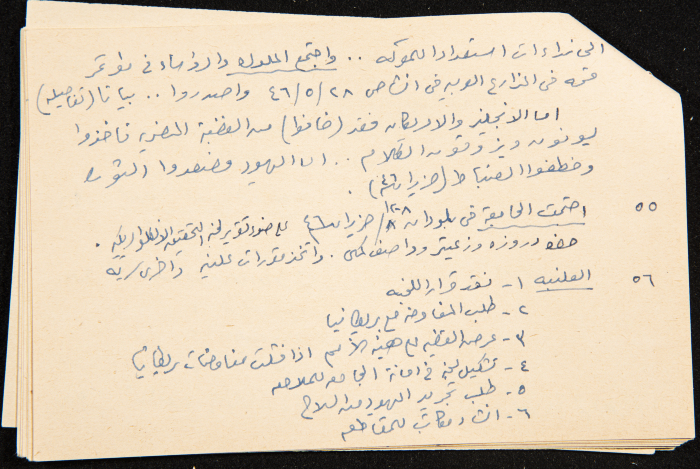 الى نداءات استعدادا للمعركة .. واجتمع الملوك والرؤساء في مؤتمر
قمة في الزارع العربية في انشاص ٢٨/٥/٤٦ واصدروا .. بيانا (تفاصيله)
اما الانجليز والامريكان فقد (خافوا) من القضية المصرية فاخذوا
يونون ويزوقون الكلام .. اما اليهود فصعدوا الثورة
وخطفوا الضباط (حزيران ٤٦) .
٥٥ اجتمعت الجامعة في بلودان ٨-١٢/ حزيران ٤٦ على ضوء تقرير لجنة التحقيق الانكلو امريكية .
حضر دروزه وزعيتر وواصف كمال . واتخذ مقررات علنية واخرى سرية
٥٦ العلنية ١- نقد قرار اللجنة
٢- طلب المفاوضة مع بريطانيا
٣- عرض القضية على هيئة الأمم اذا فشلت مفاوضات بريطانيا
٤- تشكيل لجنة في امانة الجامعة للملاحقة
٥- طلب تجريد اليهود من السلاح
٦- انشاء مكاتب للمقاطعة